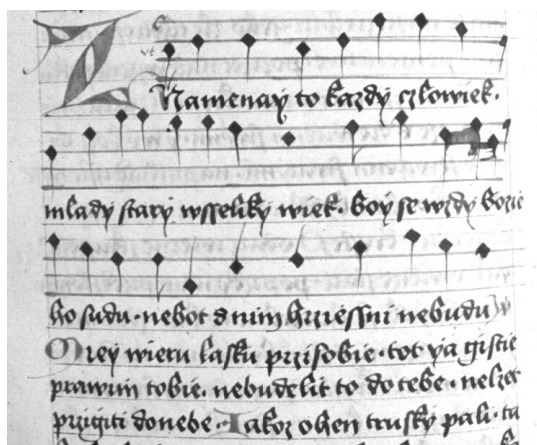 Znamenay to kazdy czlowiek.
mlady stary wsseliky wiek. boy se wzdy bozie
ho sudu. nebot s nim hrziessni nebudu
Mrey wieru lasku przi sobie. tot ya gistie
prawim tobie. nebudelit to do tebe. nelzet
przigiti do nebe. Jakoz ohen trusky pali. ta